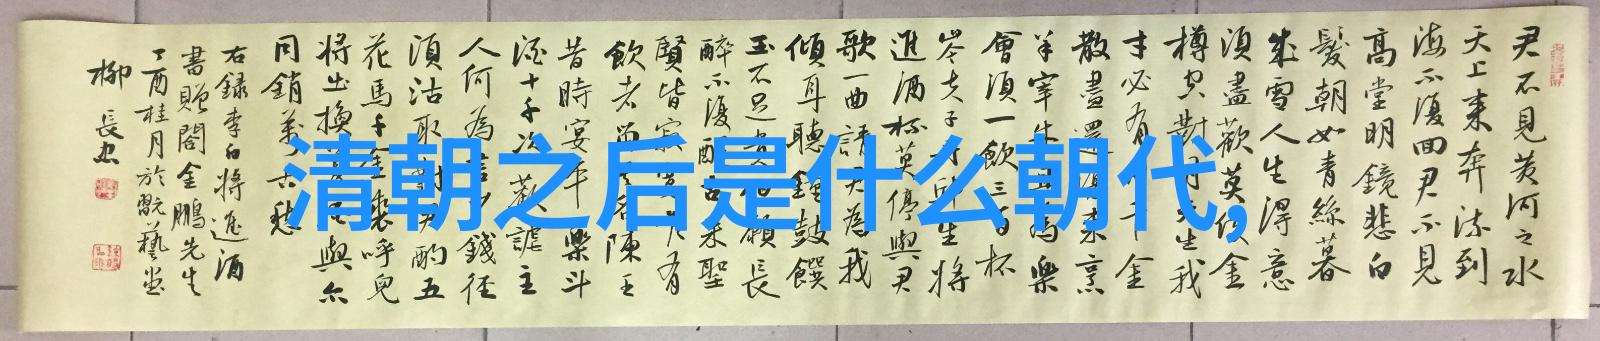 君不見黄河之水
天上来奔流到
海不復回君不見
高堂明鏡悲白
髮朝如青絲暮
成雪人生得意
須盡歡莫使金
樽空對月天生我
才必有用千金
散盡還復来烹
羊宰牛且為樂
會須一飲三百杯
岑夫子丹邱生將
進酒杯莫停與君
歌一曲請君為我
傾耳聽鐘鼓饌
玉不足貴但願長
醉不復醒古来聖
賢皆寂寞惟有
飲者留其名陳王
昔時宴平樂斗
酒十千恣歡謔主
人何為言少錢径
須沽取對君酌五
花馬千金裘呼兒
將出換美酒與尔
同銷萬古愁
右録李白將進酒
書贈閤金鵬先生
丁酉桂月於翫藝堂
柳長忠
清朝之后是什么朝代,